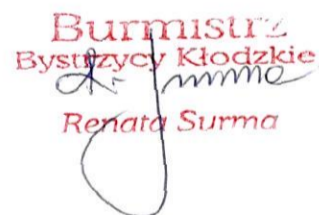 Burmistrz
Bystrzycy Kłodzkie
Renata Surma